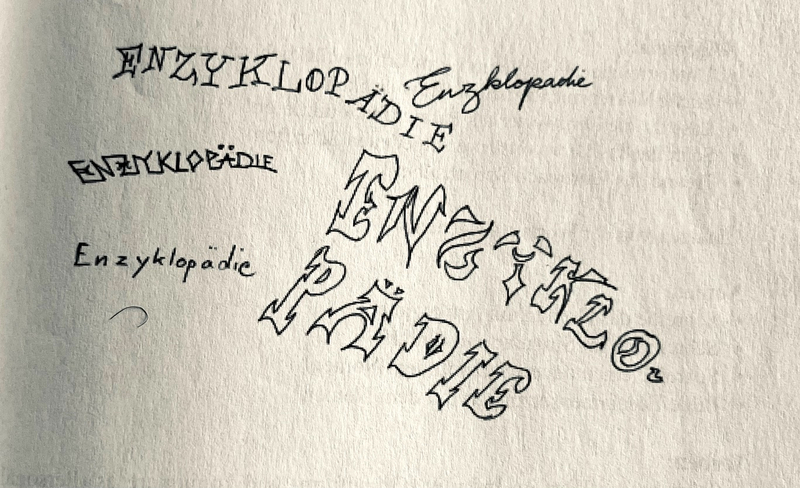 ENZYKLOPÄDIE
Enzyklopadie
ENZYKLOPÄDIE
Enzyklopädie
ENZYKLO=
PÄDIE